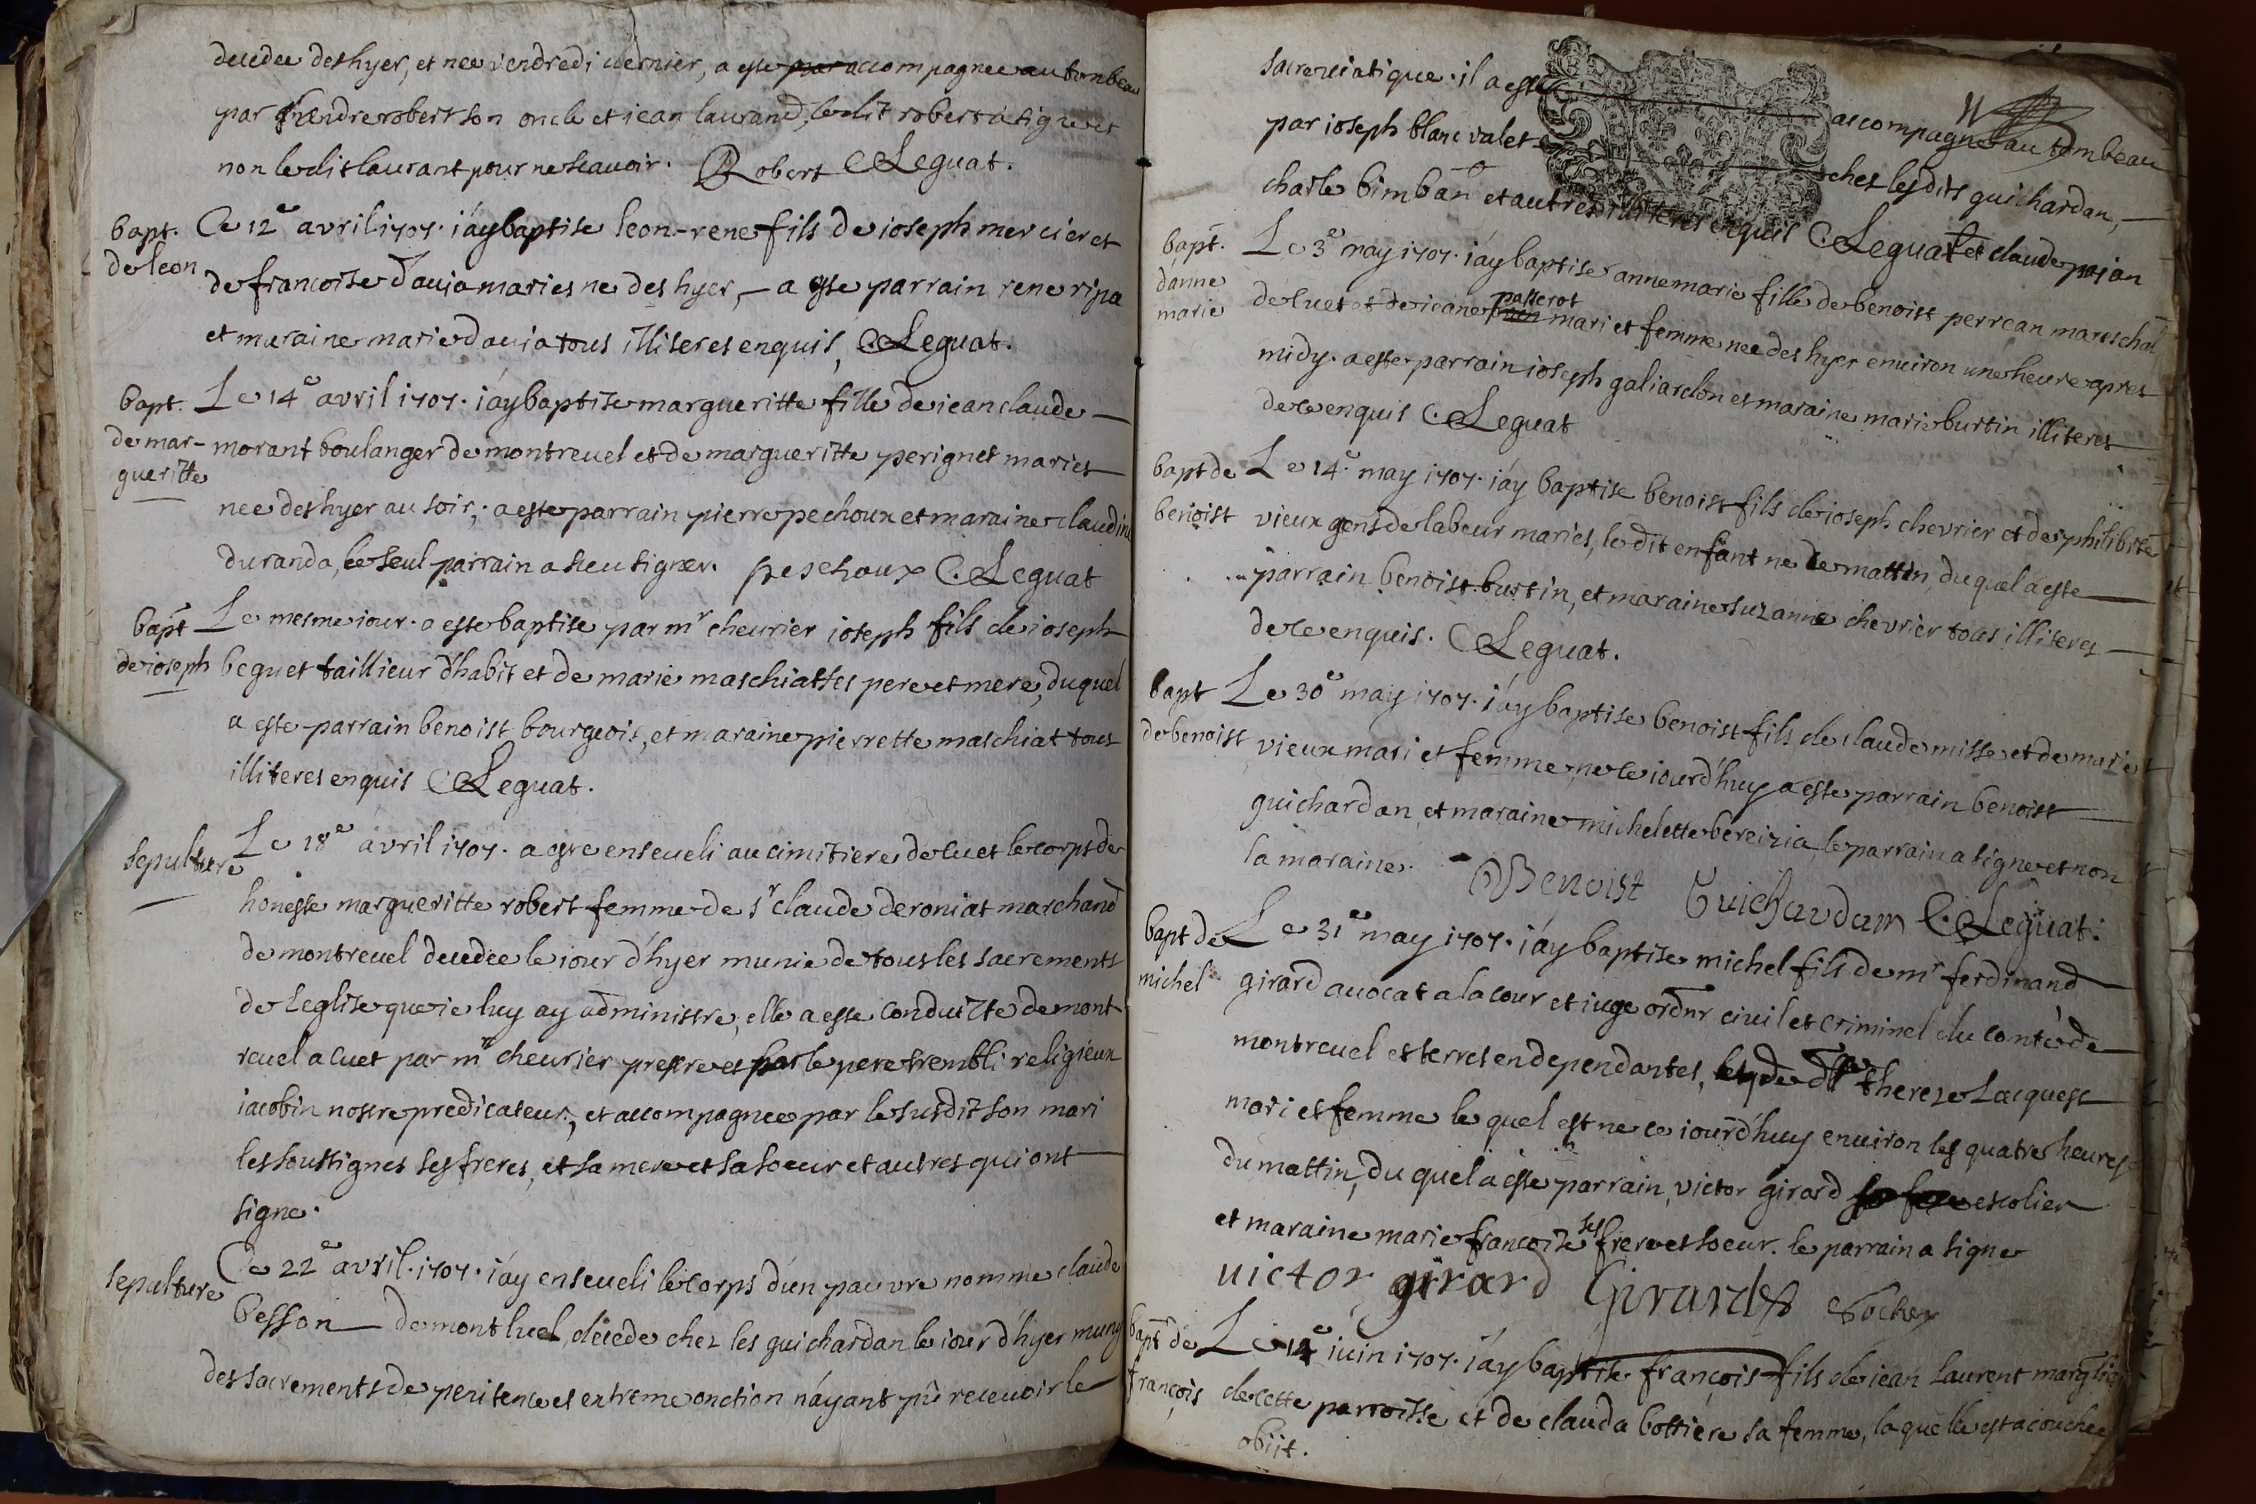 decedee des hyer, et nee vendredi dernier, a este par accompagnee au tonbeau
par andre robert son oncle et iean laurand, ledit robert a signe et
non ledit laurant pour ne scauoir. Robert C. Leguat.
bapt. Ce 12e avril 1707. i'ay baptise leon-rene fils de ioseph mercier et
de leon de francoise dauja maries ne des hyer, — a este parrain rene ripa
et maraine marie dauia tous illiteres enquis, C. Leguat.
bapt. Le 14e avril 1707. i'ay baptise margueritte fille de iean claude —
de mar- morant boulanger de montreuel et de margueritte perignet maries
gueritte
nee des hyer au soir,. a este parrain pierre pechoux et maraine claudine
duranda, le seul parrain a sceu signer. peschoux C. Leguat
bapt Le mesme iour. a este baptise par mr cheurier ioseph fils de ioseph
de ioseph beguet taillieur d'habit et de marie maschiattes pere et mere, duquel
a este parrain benoist bourgeois, et maraine pierrette maschiat tous
illiteres enquis C. Leguat.
sepulture Le 18e avril 1707. a este enseueli au cimitiere de cuet le corps de
honeste margueritte robert femme de sr claude deroniat marchand
de montreuel decedee le iour d'hyer munie de tous les sacrements
de Leglise que ie luy ay administre, elle a este conduitte de mont-
reuel a cuet par mr cheurier prestre et par le pere trembli religieux
iacobin nostre predicateur, et accompagnee par le susdit son mari
les soussignes ses freres, et sa mere et sa soeur et autres qui ont
signe.
sepulture Ce 22e avril. 1707. i'ay enseueli le corps d'un pauvre nomme claude
besson — de montluel, decede chez les guichardan le iour d'hyer muny
des sacrements de penitence et extreme onction n'ayant pu receuoir le
sacre viatique. il a este accompagne au tombeau
par ioseph blanc valet ches lesdits guichardan, —
charle bimban et autres illiteres enquis C. Leguat et claude pajan
bapt. Le 3e may 1707. i'ay baptise anne marie fille de benoist perrean mareschal
danne de cuet et de ieane passerot mari et femme nee des hyer enuiron une heure apres
marie midy. a este parrain ioseph galiardon et maraine marie burtin illiteres
de ce enquis C. Leguat
bapt de Le 14e may 1707. i'ay baptise benoist fils de ioseph chevrier et de philiberte
benoist vieux gens de labeur maries, le dit enfant ne le mattin, duquel a este —
parrain benoist burtin, et maraine suzanne chevrier tous illiteres —
de ce enquis. C. Leguat.
bapt Le 30e may 1707. i'ay baptise benoist fils de claude misse et de marie
de benoist vieux mari et femme, ne ce iourd'huy a este parrain benoist —
guichardan, et maraine michelette bereizia, le parrain a signe et non
la maraine. Benoist Guichardam C. Leguat.
bapt de Le 31e may 1707. i'ay baptise michel fils de mr ferdinand
michel girard auocat a la cour et iuge ordnr ciuil et criminel du conte de
montreuel et terres en dependantes, et de dlle thereze Lacquest
mari et femme le quel est ne ce iourd'huy enuiron les quatre heures
du mattin, du quel a este parrain, victor girard escolier
et maraine marie francoise ses frere et soeur. le parrain a signe
victor girard Girard
bapt de Le 12e iuin 1707. i'ay baptise francois fils de iean Laurent
françois de cette parroisse et de clauda bottiere sa femme, laquelle est acouchee
obiit.